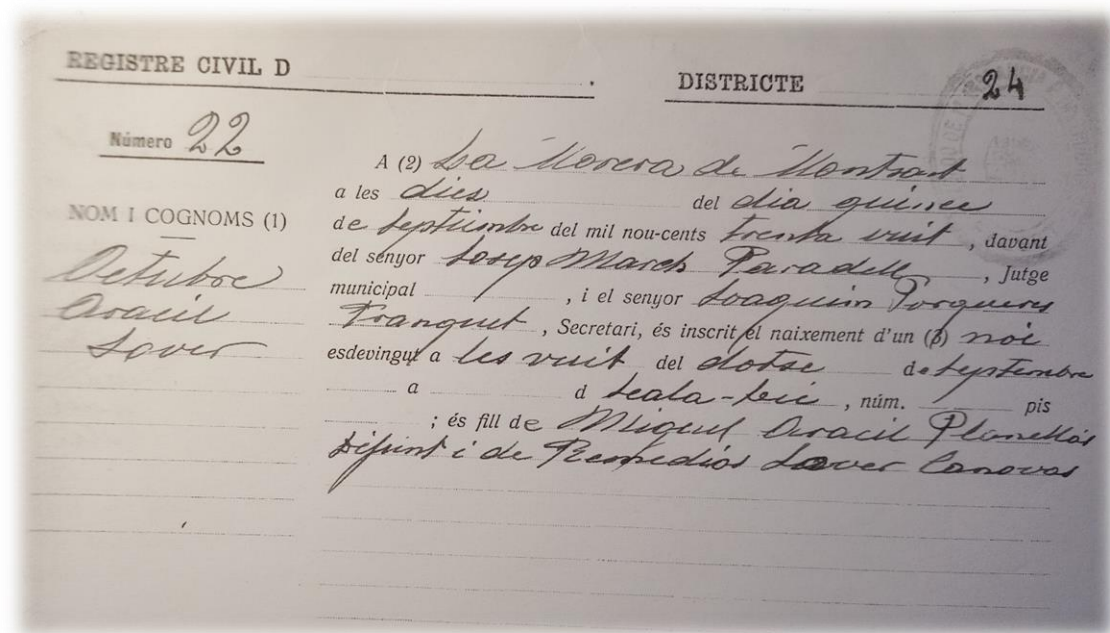 REGISTRE CIVIL D . DISTRICTE 24
Número 22
NOM I COGNOMS (1)
Octubre
Aracil
Lover
A (2) La Morera de Montsant
a les dies del dia quince
de Septiembre del mil nou-cents trenta vuit, davant
del senyor Josep March Paradell, Jutge
municipal , i el senyor Joaquim Porqueres
Franquet, Secretari, és inscrit el naixement d'un (3) noi
esdevingut a les vuit del dotse de Septembre
a d Scala-Dei, núm. pis
; és fill de Miquel Aracil Planellás
Difunt i de Remedios Lover Canovas